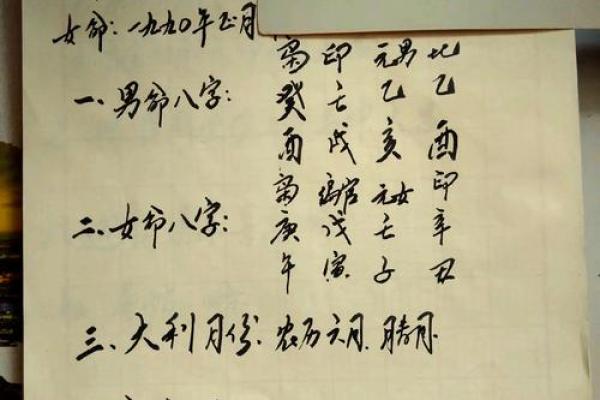 女命：一九九〇年正月
枭 印 元男 比
一、男命八字： 癸 壬 乙 乙
酉 戌 亥 酉
枭 偏官 元女 印
二、女命八字： 庚 戊 壬 辛
午 寅 子 丑
三、大利月份：农历六月、腊月